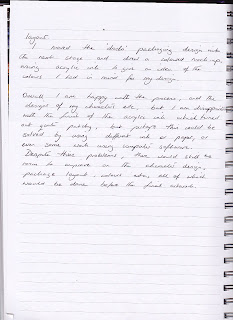 layout
I moved the dolls' packaging design onto
the next stage and did a coloured mock-up,
using acrylic ink to give an idea of the
colours I had in mind for my design.
Overall I am happy with the process, and the
design of my characters etc, but I am disappointed
with the finish of the acrylic ink which turned
out quite patchy, but perhaps this could be
solved by using different ink or paper, or
even some work using computer software.
Despite these problems, there would still be
room to improve on the character design,
package layout, colours etc, all of which
would be done before the final artwork.